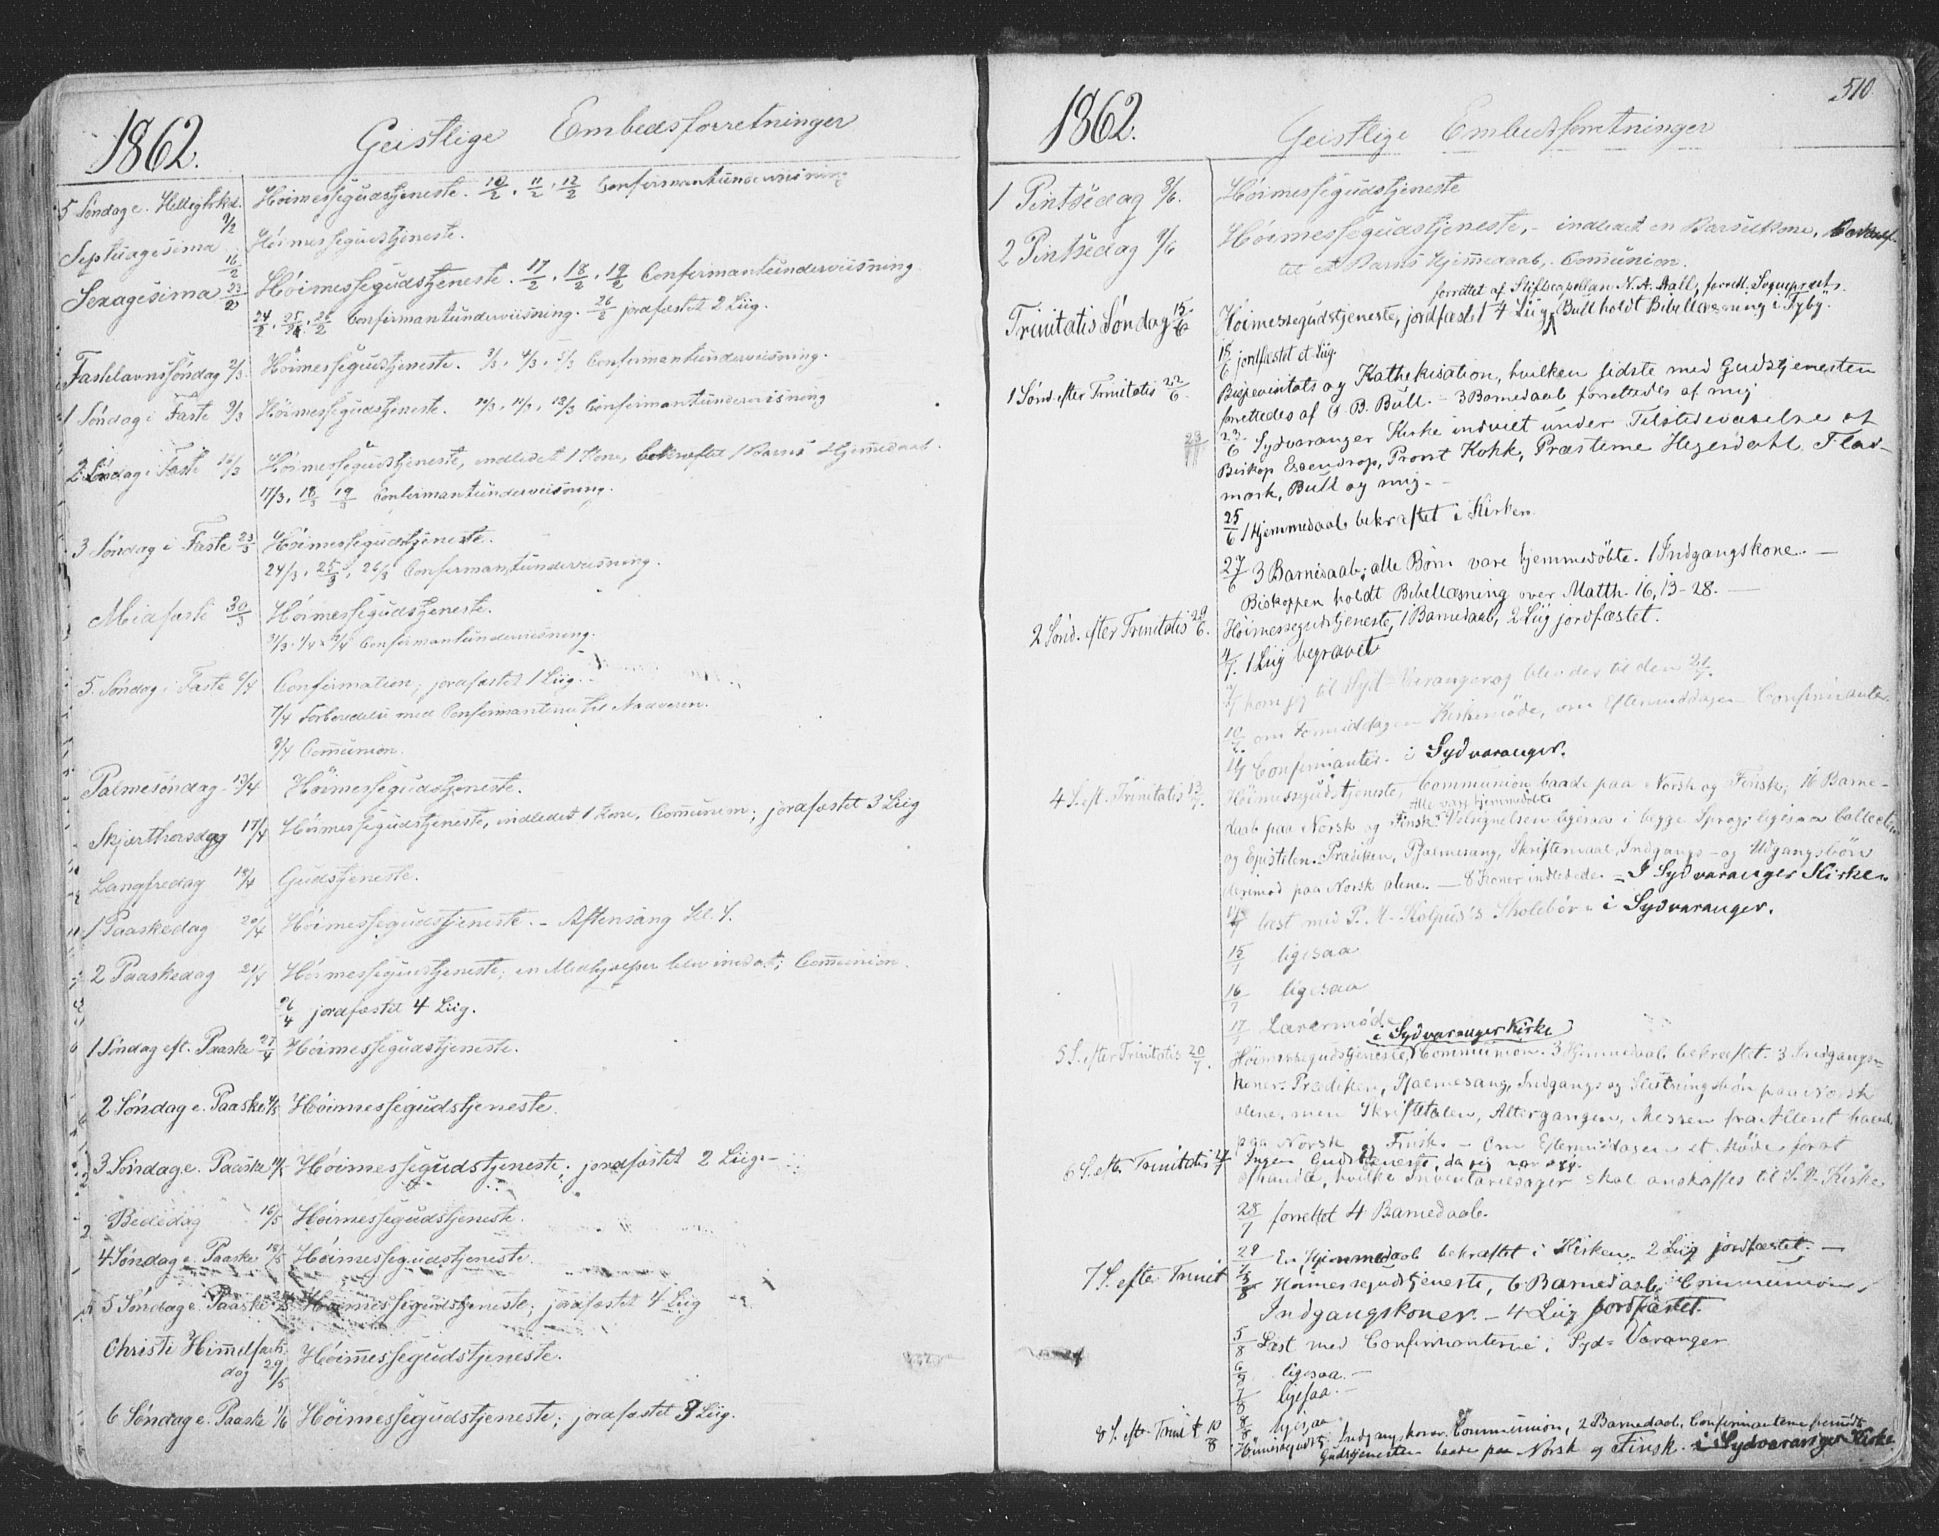 1862. Geistlige Embedsforretninger
5 Søndag e. Helligtrkd. 9/2 Høimessegudstjeneste. 10/2, 11/2, 12/2 Confirmantunderviisning
Septuagesima 16/2 Høimessegudstjeneste.
Sexagesima 23/2 Høimessegudstjeneste. 17/2, 18/2, 19/2 Confirmantunderviisning
24/2, 25/2, 26/2 Confirmantunderviisning. 26/2 jordfæstet 2 Liig.
Fastelavnssøndag 2/3 Høimessegudstjeneste. 3/3, 4/3, 5/3 Confirmantunderviisning.
1 Søndag i Faste 9/3 Høimessegudstjeneste. 10/3, 11/3, 12/3 Confirmantunderviisning
2 Søndag i Faste 16/3 Høimessegudstjeneste, indledet 1 Kone, bekræftet 1 Barns Hjemmedaab.
17/3, 18/3 19/3 Confirmantunderviisning.
3 Søndag i Faste 23/3 Høimessegudstjeneste.
24/3, 25/3, 26/3 Confirmantunderviisning.
Midfaste 30/3 Høimessegudstjeneste.
31/3. 1/4 2/4 Confirmantunderviisning.
5. Søndag i Faste 6/4 Confirmation; jordfæstet 1 Liig.
7/4 Forberedelse med Confirmanterne til Nadveren.
9/4 Comunion.
Palmesøndag 13/4 Høimessegudstjeneste.
Skjærthorsdag 17/4 Høimessegudstjeneste, indledet 1 Kone, Comunion; jordfæstet 3 Liig
Langfredag 18/4 Gudstjeneste.
1 Paaskedag 20/4 Høimessegudstjeneste. - Aftensang Kl. 4.
2 Paaskedag 21/4 Høimessegudstjeneste; en Medhjælper blev indsat; Comunion.
26/4 jordfæstet 4 Liig.
1 Søndag eft. Paaske 27/4 Høimessegudstjeneste.
2 Søndag e. Paaske 4/5 Høimessegudstjeneste.
3 Søndag e. Paaske 11/5 Høimessegudstjeneste; jordfæstet 2 Liig.-
Bededag 16/5 Høimessegudstjeneste.
4 Søndag e. Paaske 18/5 Høimessegudstjeneste.
5 Søndag e. Paaske Høimessegudstjeneste; jordfæstet 4 Liig
Christi Himmelfarts-
dag 29/5 Høimessegudstjeneste.
6 Søndag e. Paaske 1/6 Høimessegudstjeneste; jordfæstet 3 Liig.
510
1862. Geistlige Embedsforretninger
1 Pintsedag 8/6. Høimessegudstjeneste
2 Pintsedag 9/6 Høimessegudstjeneste, - indledet en Barselkone,
et Barns Hjemmedaab. Comunion.
forrettet af Stiftscapellan N. A. Bull, forrett. Sognepræst.
Trinitatis Søndag 15/6 Høimessegudstjeneste, jordfæstet 4 Liig, Bull holdt Bibellæsning i Nyby.
18/6 jordfæstet et Liig.
1 Sønd. efter Trinitatis 22/6. Bispevisitats og Kathekisation, hvilken sidste med Gudstjenesten
forrettedes af O. B. Bull. - 3 Barnedaab forrettedes af mig
23/6 Sydvaranger Kirke indviet under Tilstedeværelse af
Biskop Essendrop, Provst Kokk, Præsterne Hegerdahl, Flad-
mark, Bull og mig.-
25/6 1 Hjemmedaab bekræftet i Kirken
27/6 3 Barnedaab; alle Børn vare hjemmedøbte. 1 Indgangskone.-
Biskoppen holdt Bibellæsning over Matth. 16, 13-28.-
2 Sønd. efter Trinitatis 29/6. Høimessegudstjeneste, 1 Barnedaab, 2 Liig jordfæstet.
4/7. 1 Liig begravet
kom jeg til Syd-Varanger og blev der til den 21/7.
10/7. om Formiddagen Kirkemøde, om Eftermiddagen Confirmanter
11/7 Confirmanter. i Sydvaranger.
4 S. eft. Trinitatis 13/7. Høimessegudstjeneste, Communion baade paa Norsk og Finsk, 16 Barne-
Alle vare hjemmedøbte
daab paa Norsk og Finsk. Velsignelsen ligesaa i begge Sprog; ligesaa Collecten
og Epistelen. Prædiken, Psalmesang, Skriftemaal, Indgangs- og Udgangsbøn
derimod paa Norsk alene. - 8 Koner indledede. - I Sydvaranger Kirke.
læst med Skolebørn i Sydvaranger.
15/7 ligesaa
16/7 ligesaa
17/7 Lærermøde
i Sydvaranger Kirke
5 S. efter Trinitatis 20/7. Høimessegudstjeneste, Communion. 3 Hjemmedaab bekræftet. 3 Indgangs-
koner. Prædiken, Psalmesang, Indgangs og Slutningsbøn paa Norsk
alene, men Skriftetalen, Altergangen, Messen fra Alteret baade
paa Norsk og Finsk. - Om Eftermiddagen et Møde for at
6 S. eft. Trinitatis 27/7 Ingen Gudstjeneste, da jeg var syg.
afhandle, hvilke Inventariesager skal anskaffes til S. V. Kirke
28/7 forrettet 4 Barnedaab.
29/7 En Hjemmedaab bekræftet i Kirken. 2 Liig jordfæstet.-
7 S. efter Trinit 3/8 Høimessegudstjeneste, 6 Barnedaab, Communion,
Indgangskoner. - 4 Liig jordfæstet.
5/8 Læst med Confirmanterne i Syd-Varanger
6/8 ligesaa.-
7/8 ligesaa.-
8/8 ligesaa
8 S. efter Trinit 10/8 Høimessegudst. Indgangskoner, Communion, 2 Barnedaab, Confirmanterne
Gudstjenesten baade paa Norsk og Finsk. i Sydvaranger Kirke